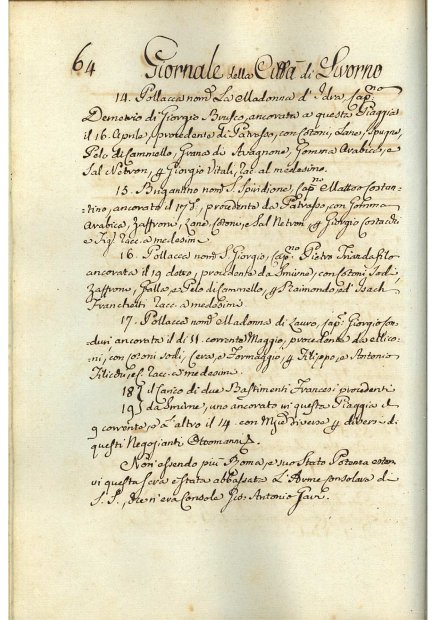 64 Giornale della Città di Livorno
14. Pollacca nom.ª La Madonna d'Idra, Cap.no
Demetrio di Giorgio Brusco, ancorata a questa Piaggia
il 16 Aprile, procedente da Patrasso, con Cottoni, Lane, Spugne,
Pelo di Cammello, Grana d' Avagnone, Gomma Arabica, e
Sal Netron, p Giorgio Vitali, rac. al medesimo.
15. Brigantino nom.º S. Spiridione, Cap.no Matteo Costan-
tino, ancorato il 17 d.º, procedente da Patrasso, con Gomma
Arabica, Zaffrone, Lane, Cottoni, e Sal Netron p Giorgio Costachi
e Figl. racc. a medesimi.
16. Pollacca nom.ª S. Giorgio, Cap.no Pietro Triandafilo
ancorata il 19 detto, procedente da Smirne, con Cottoni Sodi,
Zaffrone, Galla, e Pelo di Cammello, p Raimondo, ed Isach
Franchetti racc. a medesimi.
17. Pollacca nom.ª Madonna di Lauro, Cap.º Giorgio
ancorata il dì 11 corrente Maggio, procedente da
con Cottoni sodi, Cera, e Formaggio, p Filippo, e Antonio
racc. a medesimi.
18} il Carico di due Bastimenti Francesi procedenti
19} da Smirne, uno ancorato in questa Piaggia il
9 corrente, e l' altro il 14. con Mzie Diverse p diversi di
questi Negozianti Ottomanni.
Non essendo più Roma, e suo Stato Potenza
vi questa sera è stata abbassata L' Arme Consolare di
S. S., che n'era Console Gio: Antonio